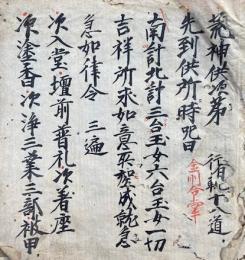 荒神供次第 行者軌十八道
先到供所時呪曰 金剛合掌
南計北計三台玉女六台玉女一切
吉祥所求如意悉聖成就急
急如律令 三遍
次入堂壇前普礼次着座
次塗香次浄三業三部被甲